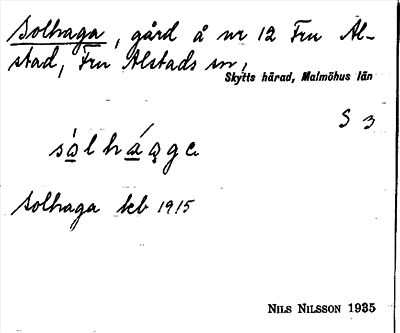 Solhaga, gård å nr 12 Fru Al-
stad, Fru Alstads sn,
Skytts härad, Malmöhus län
S 3
sòlhá̱a̱ga
Solhaga kb 1915
NILS NILSSON 1935